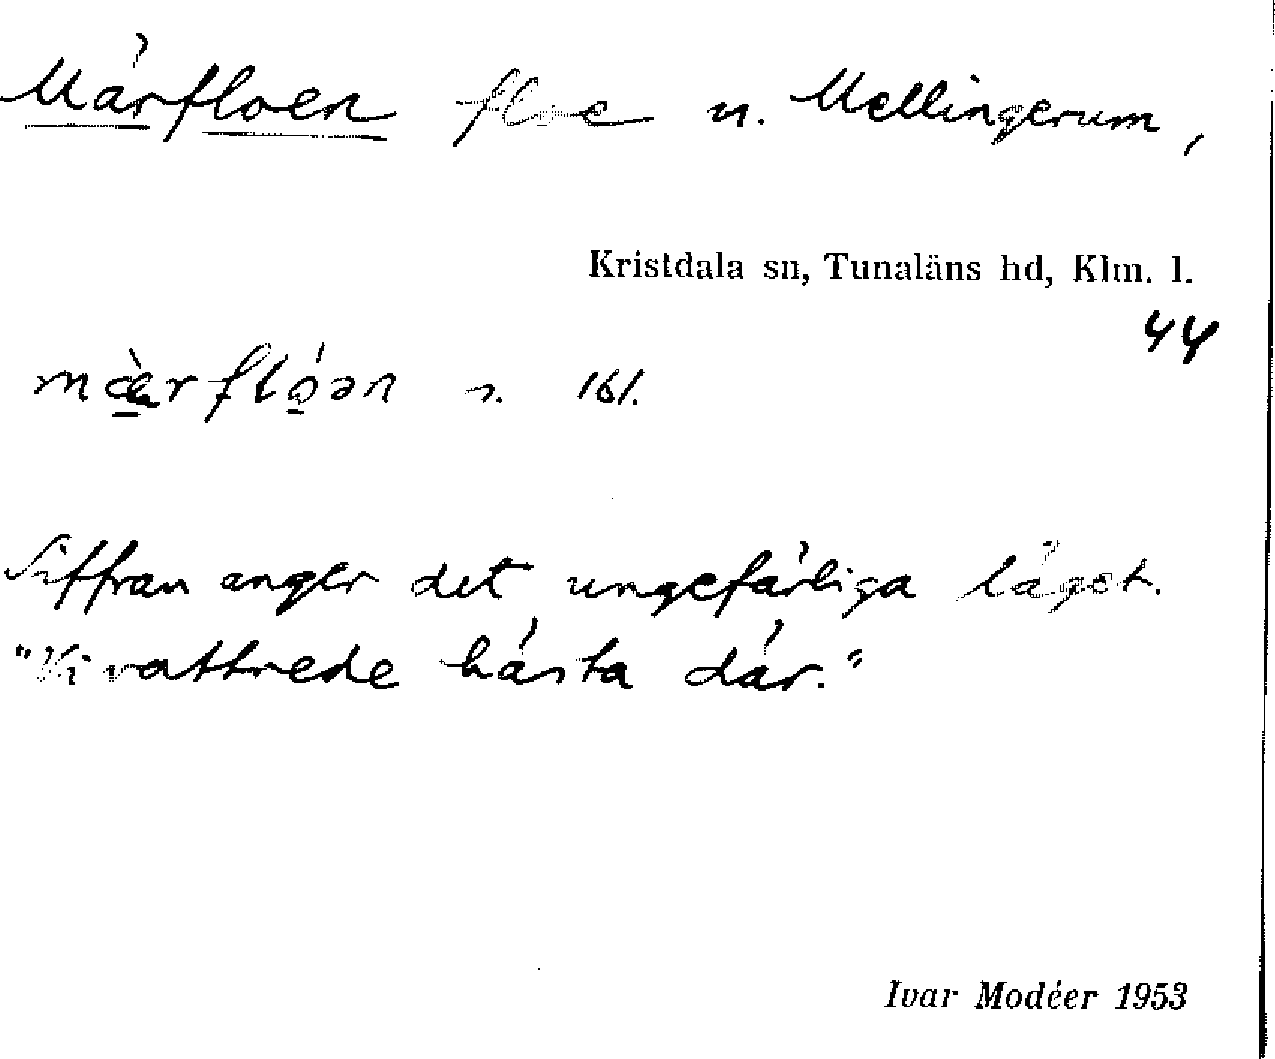 Märfloen floe n. Mellingerum,
Kristdala sn, Tunaläns hd, Klm. l.
44
mæ̀rfló̱ən n. 161.
Siffran anger det ungefärliga läget.
"Vi vattnede hästa där."
Ivar Modéer 1953